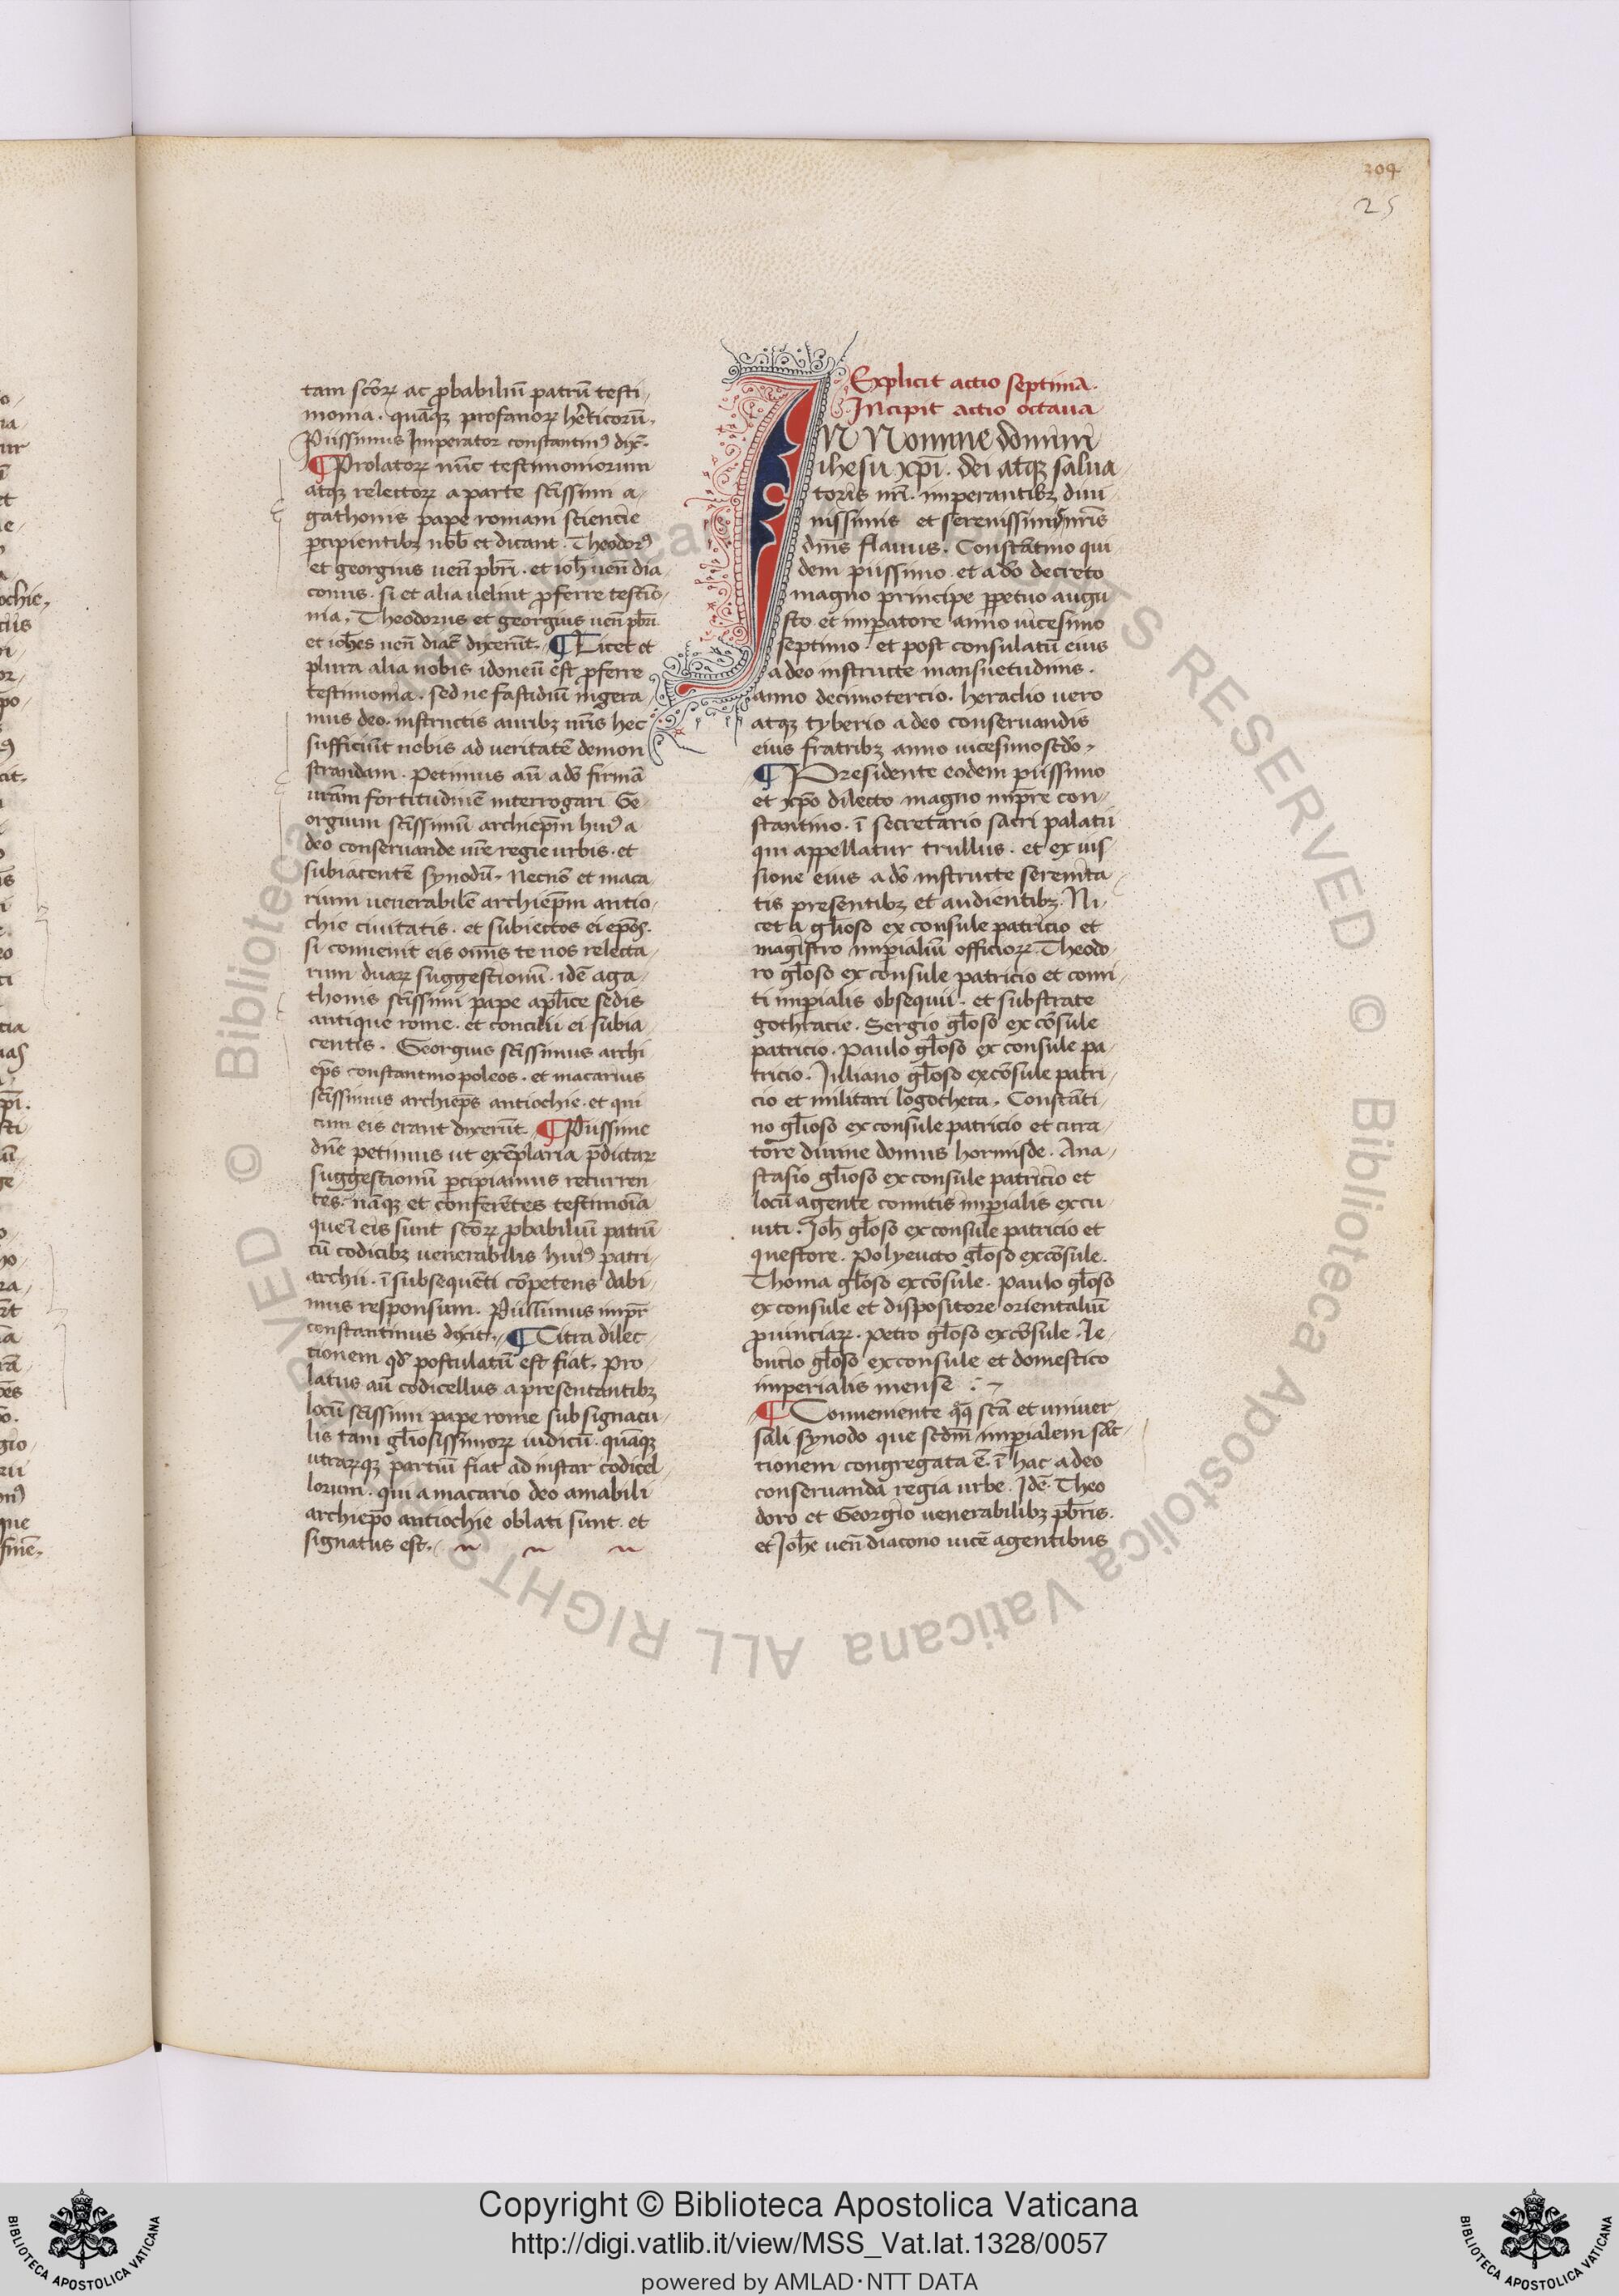 304
25
tam scōrꝝ ac ꝓbabiliū patrū testi-
monia. quāqꝫ profanorꝝ hēticorū.
Piissimus Imperator constantinꝰ dix̄.
¶ Prolatorꝝ nūc testimoniorum
atqꝫ relectorꝝ a parte scīssimi a-
gathonis pape romani sciencie
ꝑcipientibꝫ nob̄ et dicant. Theodorꝰ
et georgius ueñ pbr̄i. et ioh̄ ueñ dia
conus. si et alia uelint ꝓferre testīo-
nia. Theodorus et georgius ueñ pbr̄i
et ioh̄es ueñ diac̄ dixerūt. ¶ Licet et
plura alia nobis idoneū est ꝓferre
testimonia. sed ne fastidiū ingera
mus deo. instructis auribꝫ ur̄is hec
sufficiūt nobis ad ueritatē demon
strandam. Petimus aū a dō firmā
ur̄am fortitudinē interrogari Ge-
orgium scīssimū archiep̄m huiꝰ a
deo conseruande ur̄e regie urbis. et
subiacentē synodū. Necnō et maca
rium uenerabilē archiep̄m antio-
chie ciuitatis. et subiectos ei ep̄os.
si conuenit eis om̄s te nos relecta-
rum duarꝝ suggestionū. idē aga-
thonis scīssimi pape aplīce sedis
antique rome. et concilii ei subia
centis. Georgius scīssimus archi
ep̄s constantinopoleos. et macarius
scīssimus archiep̄s antiochie. et qui
cum eis erant dixerūt. ¶ Piissime
dn̄e petimus ut exēplaria p̄dictaꝝ
suggestionū ꝑcipiamus recurren
tes. nāqꝫ et conferētes testimoīa
que ī eis sunt scōrꝝ ꝓbabiliū patrū
cū codicibꝫ uenerabilis huiꝰ patri-
archii. ī subsequēti cōpetens dabi-
mus responsum. Piissimus impr̄
constantinus dixit. ¶ Citra dilec-
tionem qd̄ postulatū est fiat. Pro-
latus aū codicellus a presentantibꝫ
locū scīssimi pape rome sub signacu-
lis tam gl̄iosissimorꝝ iudicū. quāqꝫ
utrarꝝqꝫ partiū fiat ad instar codicel-
lorum. qui a macario deo amabili
archiep̄o antiochie oblati sunt. et
signatus est.
Explicit actio septima.
Incipit actio octaua
IN Nomine domini
ihesu xp̄i. dei atqꝫ salua-
toris nr̄i. imperantibꝫ diui-
nissimis et serenissimis nr̄is
dn̄is flauiis. Constātino qui
dem piissimo. et a dō decreto
magno principe ꝑpetuo augu
sto et imꝑatore anno uicesimo
septimo. et post consulatū eius
a deo instructe mansuetudinis.
anno decimotercio. heraclio uero
atqꝫ tyberio a deo conseruandis
eius fratribꝫ anno uicesimosedō.
¶ Presidente eodem piissimo
et xp̄o dilecto magno imp̄re con-
stantino. ī secretario sacri palatii
qui appellatur trullus. et ex iuss
sione eius a dō instructe serenita
tis presentibꝫ et audientibꝫ. Ni-
ceta gl̄ioso ex consule patricio et
magistro imꝑialiū officiorꝝ. Theodo
ro gl̄oso ex consule patricio et comi-
ti imꝑialis obsequii. et substrate
gothracie. Sergio gl̄oso ex cōsule
patricio. Paulo gl̄oso ex consule pa-
tricio. Iuliano gl̄oso excōsule patri-
cio et militari logotheta. Constāti-
no gl̄ioso ex consule patricio et cura-
tore diuine domus hormisde. Ana-
stasio gl̄ioso ex consule patricio et
locū agente comitis imꝑialis excu
uiti. Ioh̄ gl̄oso ex consule patricio et
questore. Polyeucto gl̄oso excōsule.
Thoma gl̄oso excōsule. Paulo gl̄oso
ex consule et dispositore orientaliū
ꝓuinciarꝝ. Petro gl̄oso excōsule. Le-
uncio gl̄oso exconsule et domestico
imperialis mense :~
¶ Conueniente qͣqꝫ scā et uniuer-
sali synodo que scdm̄ imꝑialem sāc-
tionem congregata ē. ī hac a deo
conseruanda regia urbe. Idē Theo
doro et Georgio uenerabilibꝫ pbr̄is.
et Ioh̄e ueñ diacono uicē agentibus
Copyright © Biblioteca Apostolica Vaticana
http://digi.vatlib.it/view/MSS_Vat.lat.1328/0057
powered by AMLAD·NTT DATA
BIBLIOTECA APOSTOLICA VATICANA
BIBLIOTECA APOSTOLICA VATICANA